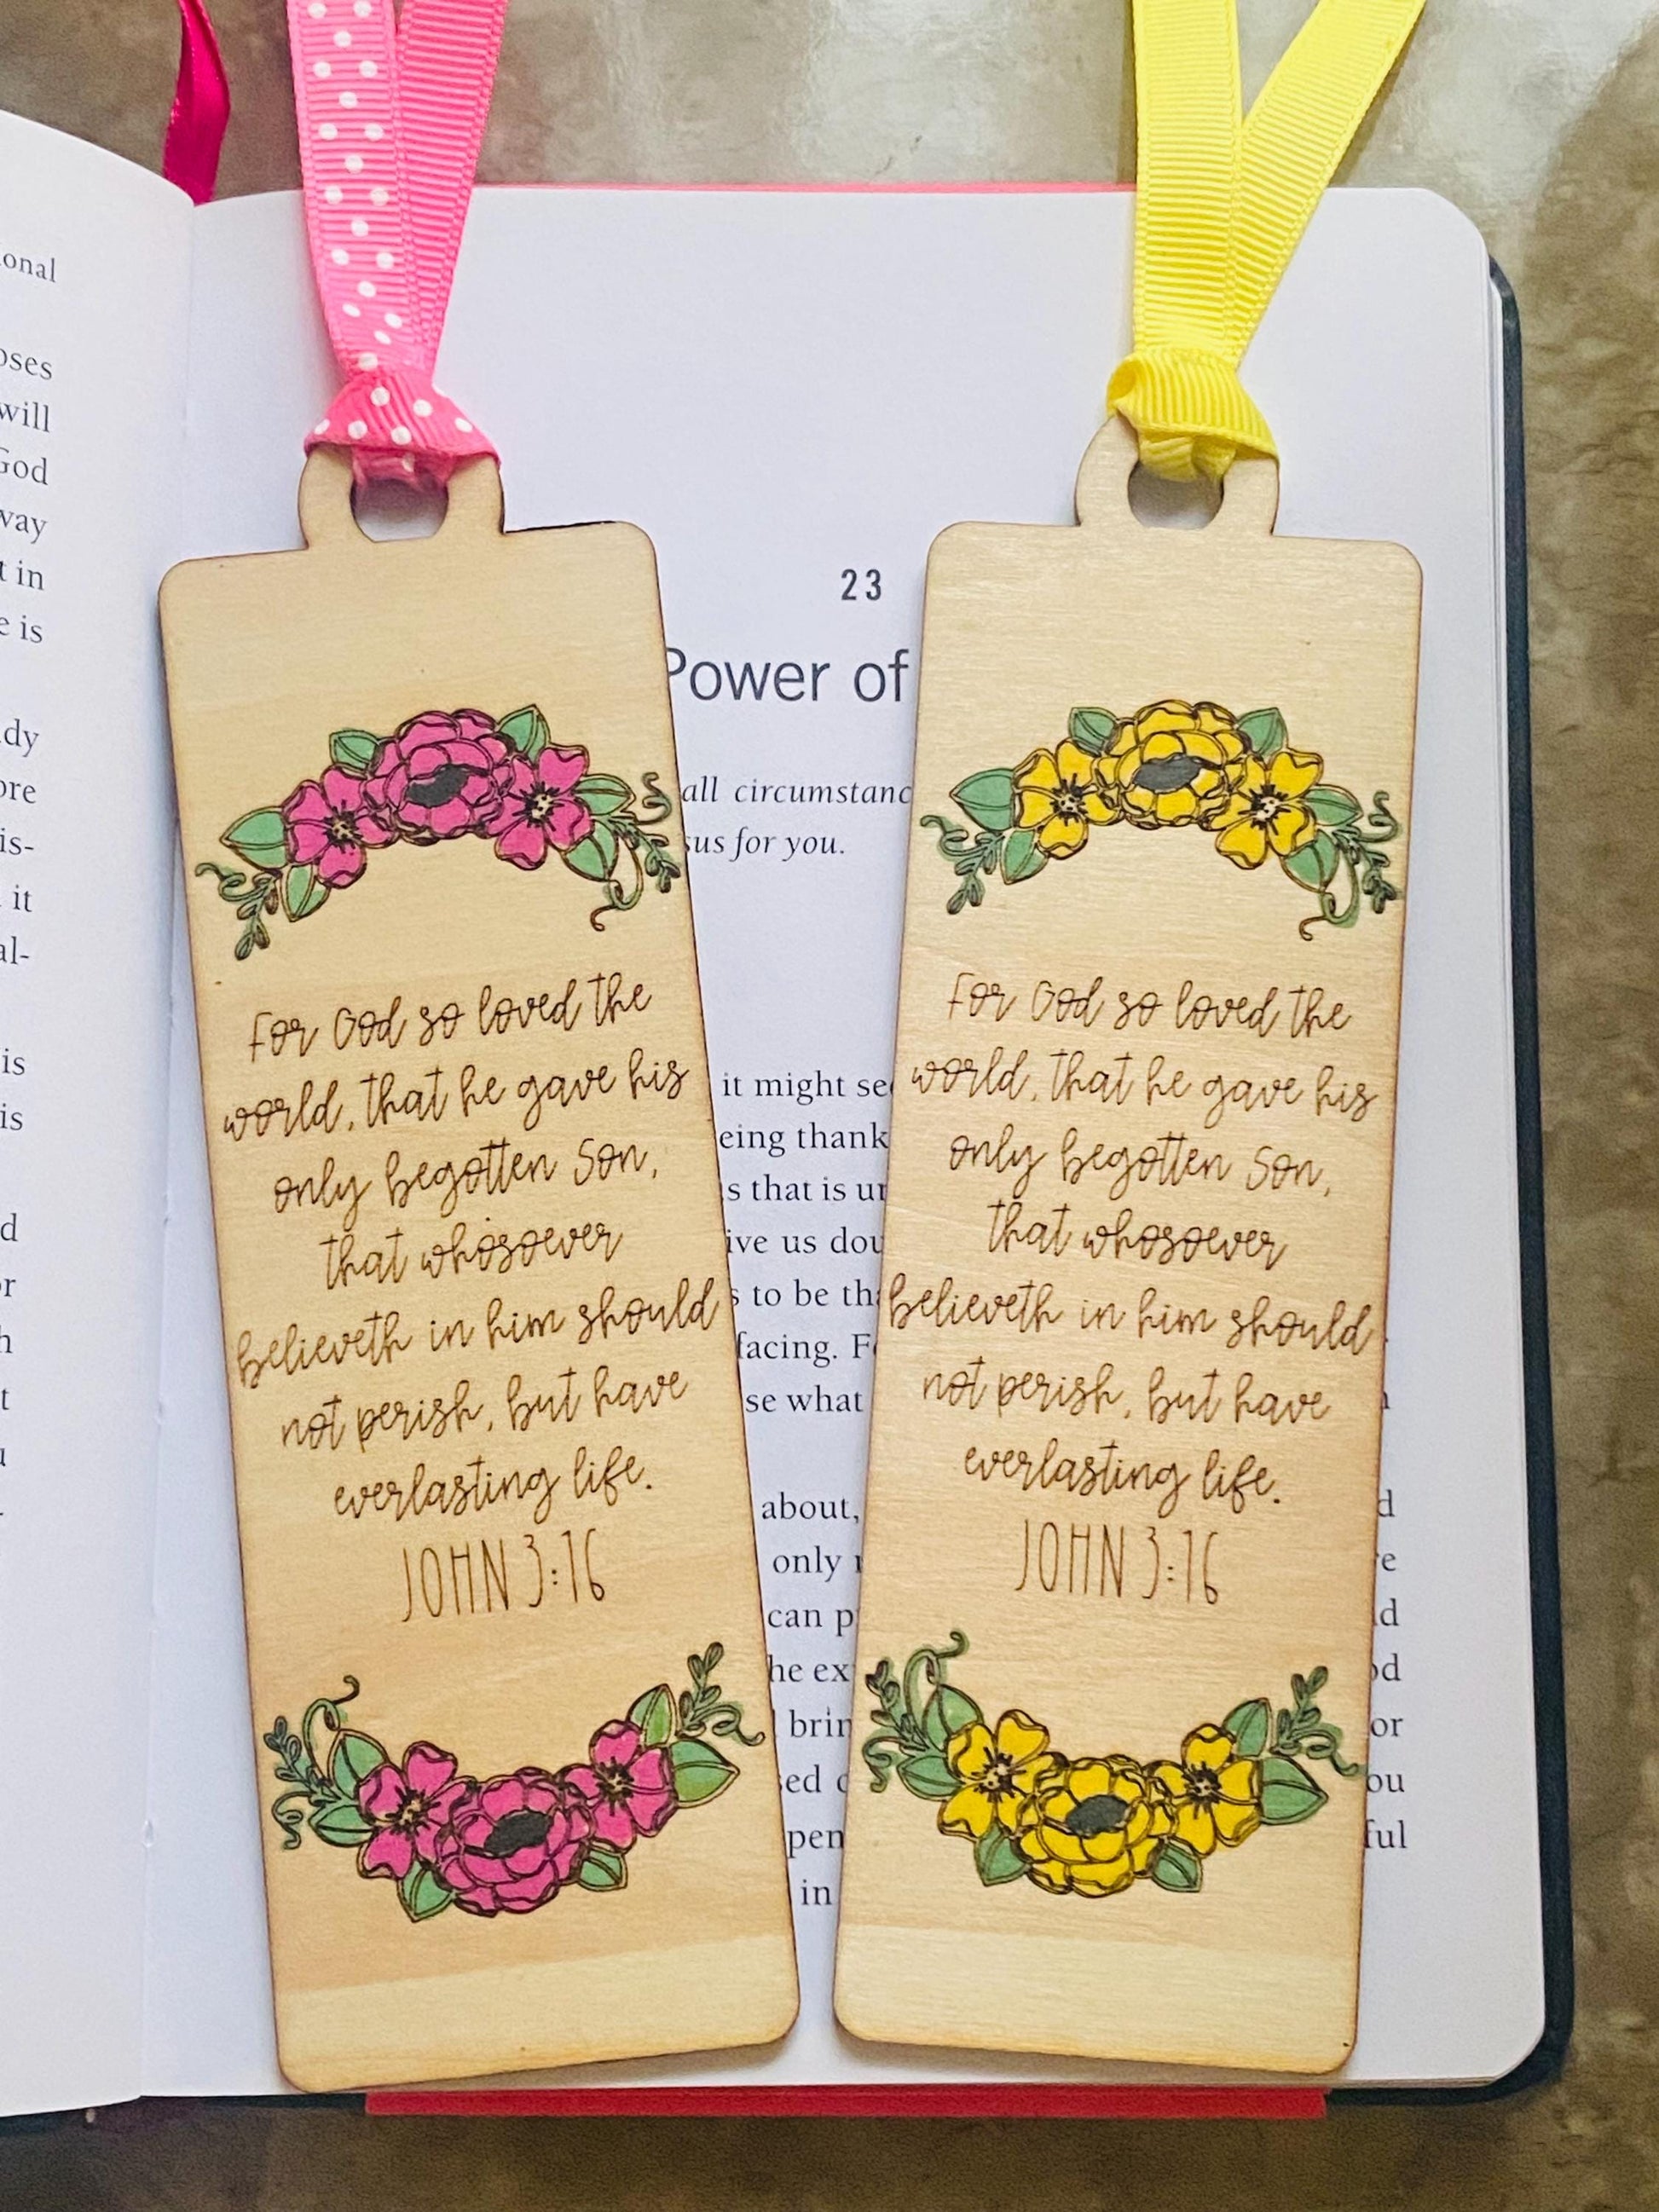 will
God
way
t in
e is
it
is
is
For God so loved the
world, that he gave his
only begotten Son,
that whosoever
believeth in him should
not perish, but have
everlasting life.
JOHN 3:16
23
Power of
all circumstanc
sus for you.
it might se
eing thank
s that is un
ive us dou
s to be tha
facing. Fo
se what
about,
only
can p
he ex
brin
sed
pen
in
For God so loved the
world, that he gave his
only begotten Son,
that whosoever
believeth in him should
not perish, but have
everlasting life.
JOHN 3:16